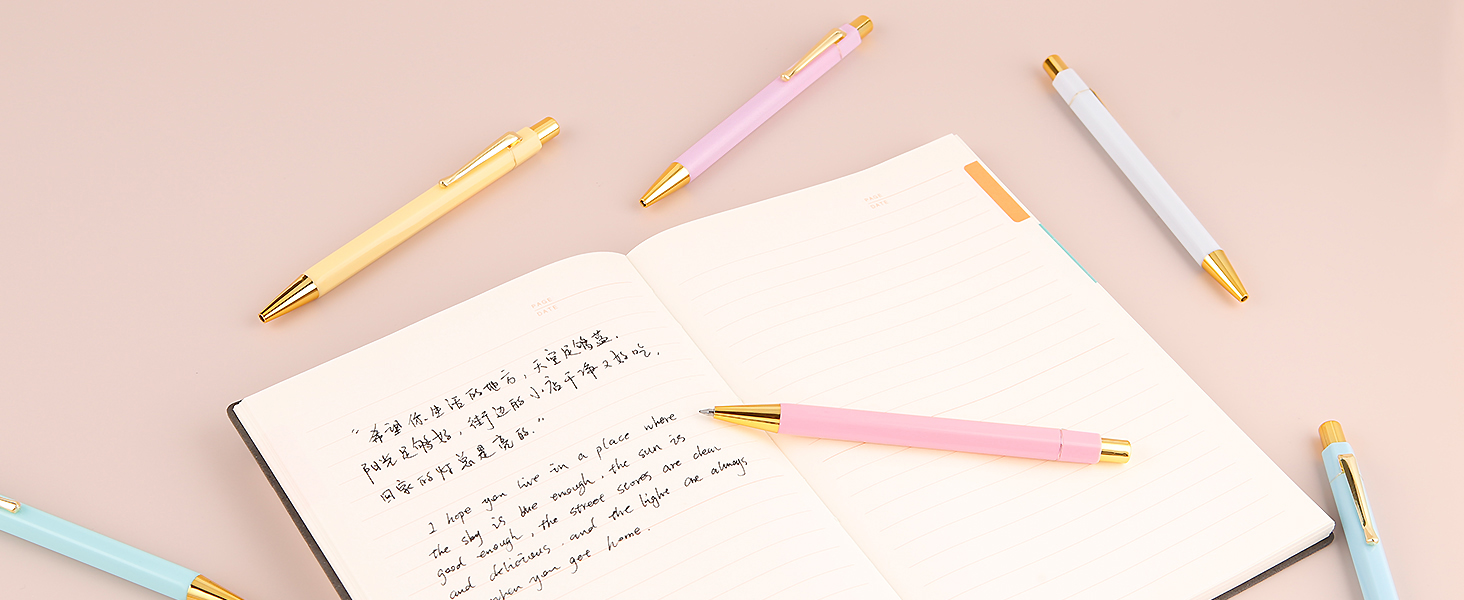 PAGE
DATE
PAGE
DATE
"希望你生活的地方,天空足够蓝.
阳光足够好,街边的小店干净又好吃,
回家的灯总是亮的."
I hope you live in a place where
the sky is blue enough, the sun is
good enough, the street stores are clean
and delicious. and the light are always
when you get home.